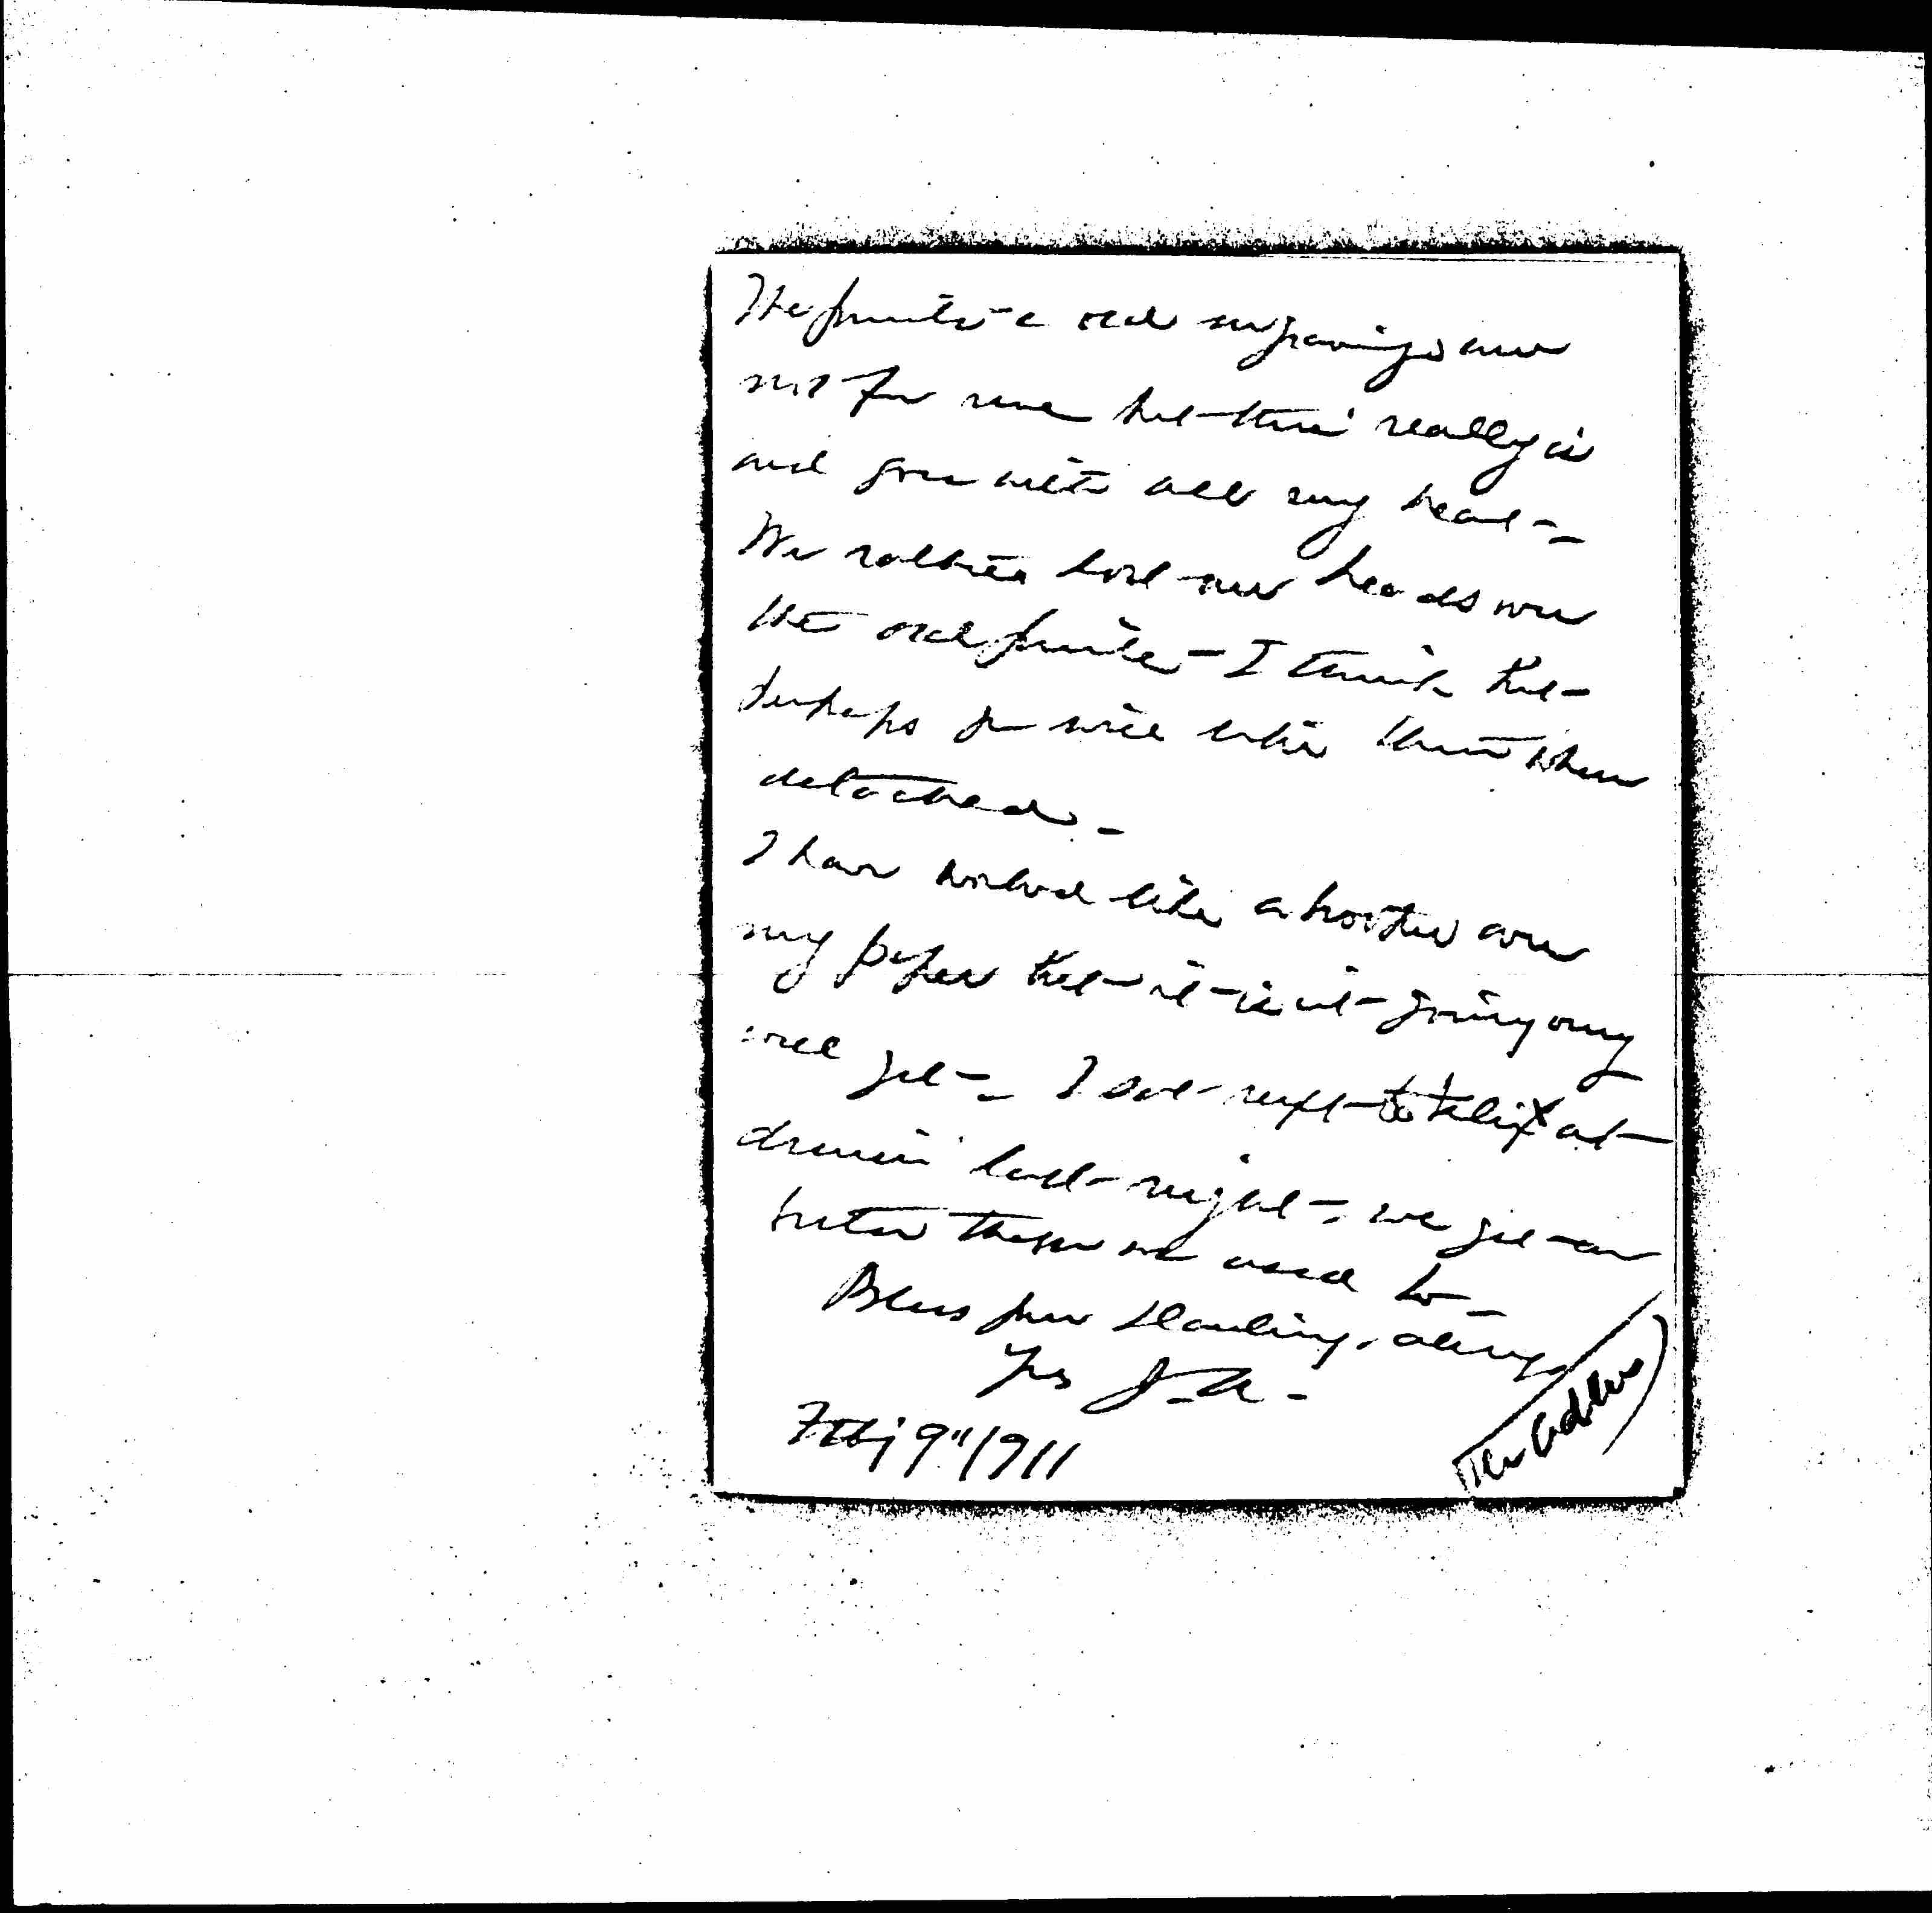 The prints & old engravings are
not for me but this really is
and goes with all my heart -
We rather lost our heads over
the old prints - I think that
perhaps you will like them when
detached -
I have worked like a over
my paper but it is not going very
well yet - I sat next to Felix at
dinner last night - we get on
better than we used to -
Bless you darling, always
Yrs J. A. -
Feby 9"/1911
(Jane Addams)